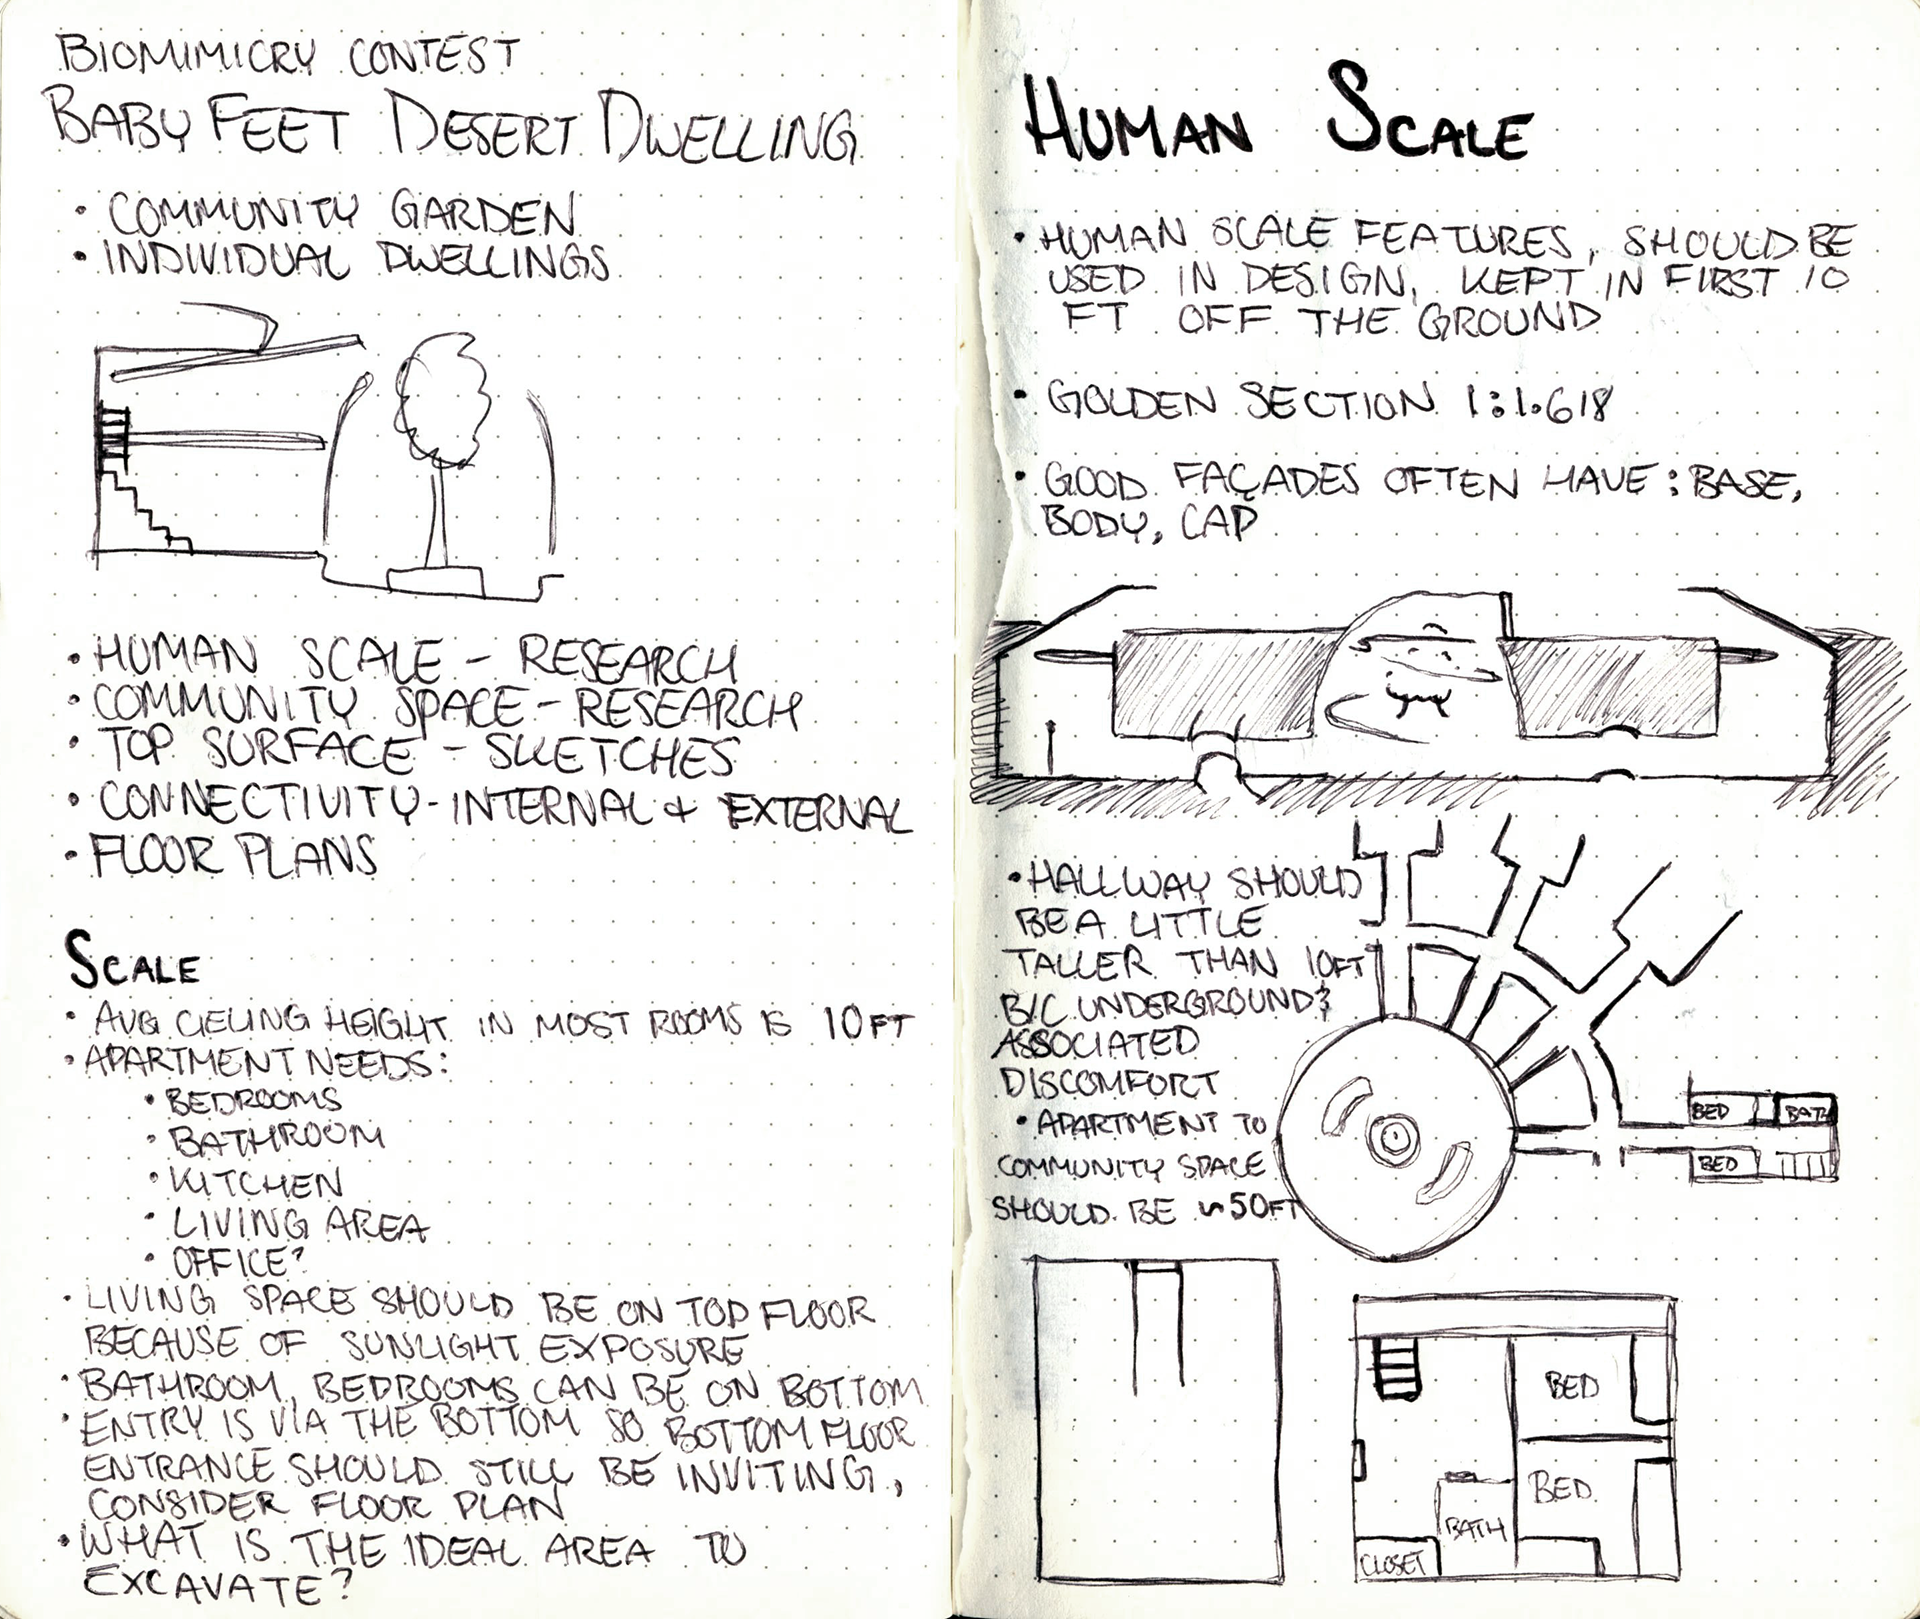 BIOMIMICRY CONTEST
BABY FEET DESERT DWELLING
• COMMUNITY GARDEN
• INDIVIDUAL DWELLINGS
• HUMAN SCALE - RESEARCH
• COMMUNITY SPACE - RESEARCH
• TOP SURFACE - SKETCHES
• CONNECTIVITY - INTERNAL & EXTERNAL
• FLOOR PLANS
SCALE
• AVG CIELING HEIGHT IN MOST ROOMS IS 10 FT
• APARTMENT NEEDS:
• BEDROOMS
• BATHROOM
• KITCHEN
• LIVING AREA
• OFFICE?
• LIVING SPACE SHOULD BE ON TOP FLOOR
BECAUSE OF SUNLIGHT EXPOSURE
• BATHROOM, BEDROOMS CAN BE ON BOTTOM
• ENTRY IS VIA THE BOTTOM SO BOTTOM FLOOR
ENTRANCE SHOULD STILL BE INVITING,
CONSIDER FLOOR PLAN
• WHAT IS THE IDEAL AREA TO
EXCAVATE?
HUMAN SCALE
• HUMAN SCALE FEATURES, SHOULD BE
USED IN DESIGN, KEPT IN FIRST 10
FT OFF THE GROUND
• GOLDEN SECTION 1:1.618
• GOOD FAÇADES OFTEN HAVE: BASE,
BODY, CAP
• HALLWAY SHOULD
BE A LITTLE
TALLER THAN 10FT
B/C UNDERGROUND &
ASSOCIATED
DISCOMFORT
• APARTMENT TO
COMMUNITY SPACE
SHOULD BE ~50FT
BED BATH
BED
BED
BED
BATH
CLOSET